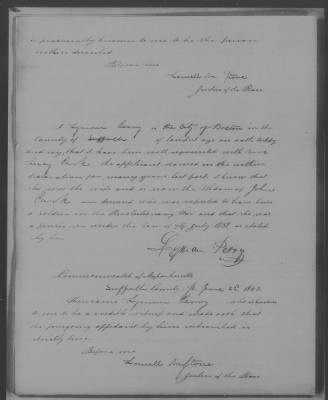 is personally known to me to be the person
within described
Before me
Lowell M. Stone
Justice of the Peace
I Lyman Perry of the City of Boston in the
County of Suffolk of lawful age on oath
and say, that I have been well acquainted with
the applicant named in the within
declaration for many years last past. I know that
she was the wife and is now the Widow of John
deceased was reputed to have been
a soldier in the Revolutionary War and that she was
a pensioner under the law of 7th July 1838 as stated
by her
Lyman Perry
Commonwealth of Massachusetts
Suffolk County, ss June 22, 18
then came Lyman Perry who is known
to me to be a credible witness and made oath that
the foregoing affidavit by him subscribed is
strictly true.
Before me
Lowell M. Stone
Justice of the Peace